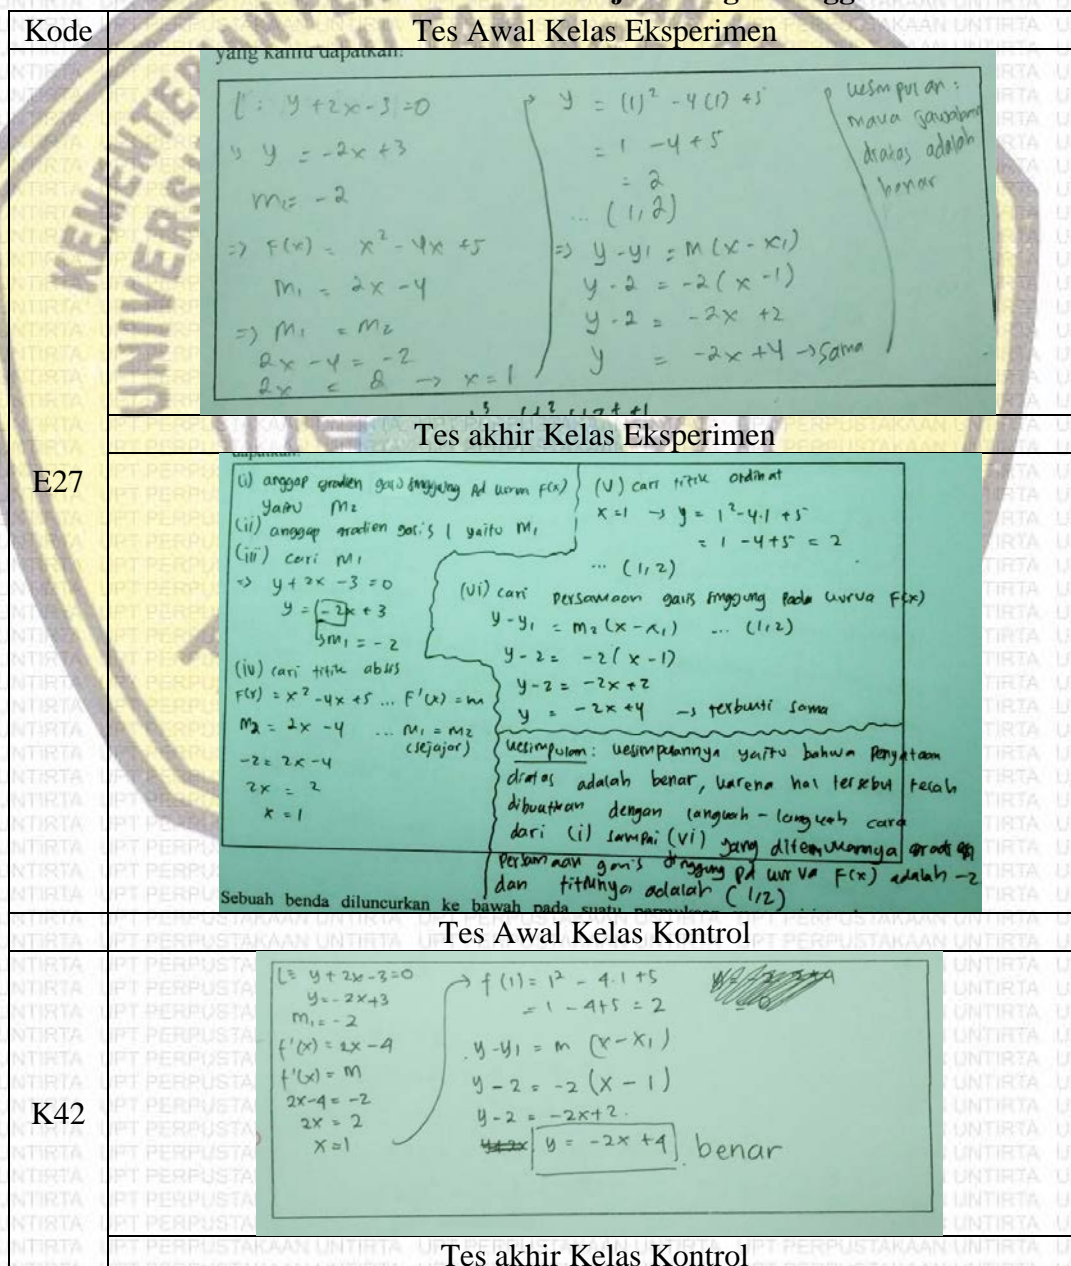 Kode
Tes Awal Kelas Eksperimen
yang kamu dapatkan.
l : y + 2x - 3 = 0
y = -2x + 3
m2 = -2
=> F(x) = x² - 4x + 5
m1 = 2x - 4
=> m1 = m2
2x - 4 = -2
2x = 2 → x = 1
y = (1)² - 4(1) + 5
= 1 - 4 + 5
= 2
... (1, 2)
=> y - y1 = m (x - x1)
y - 2 = -2 (x - 1)
y - 2 = -2x + 2
y = -2x + 4 → sama
kesimpulan :
maka jawaban
diatas adalah
benar
Tes akhir Kelas Eksperimen
E27
(i) anggap gradien garis singgung pd kurva F(x)
yaitu m2
(ii) anggap gradien garis l yaitu m1
(iii) cari m1
=> y + 2x - 3 = 0
y = -2x + 3
m1 = -2
(iv) cari titik absis
F(x) = x² - 4x + 5 ... F'(x) = m
m2 = 2x - 4 ... m1 = m2
(sejajar)
-2 = 2x - 4
2x = 2
x = 1
(v) cari titik ordinat
x = 1 → y = 1² - 4.1 + 5
= 1 - 4 + 5 = 2
... (1, 2)
(vi) cari persamaan garis singgung pada kurva F(x)
y - y1 = m2 (x - x1) ... (1,2)
y - 2 = -2 (x - 1)
y - 2 = -2x + 2
y = -2x + 4 → terbukti sama
kesimpulan : kesimpulannya yaitu bahwa penyataan
diatas adalah benar, karena hal tersebut telah
dibuktikan dengan langkah - langkah cara
dari (i) sampai (vi) yang ditemukannya gradien
persamaan garis singgung pd kurva F(x) adalah -2
dan titiknya adalah (1/2)
Sebuah benda diluncurkan ke bawah pada suatu
Tes Awal Kelas Kontrol
K42
l = y + 2x - 3 = 0
y = -2x + 3
m1 = -2
f'(x) = 2x - 4
f'(x) = m
2x - 4 = -2
2x = 2
x = 1
→ f(1) = 1² - 4.1 + 5
= 1 - 4 + 5 = 2
y - y1 = m (x - x1)
y - 2 = -2 (x - 1)
y - 2 = -2x + 2
y = -2x + 4 benar
Tes akhir Kelas Kontrol